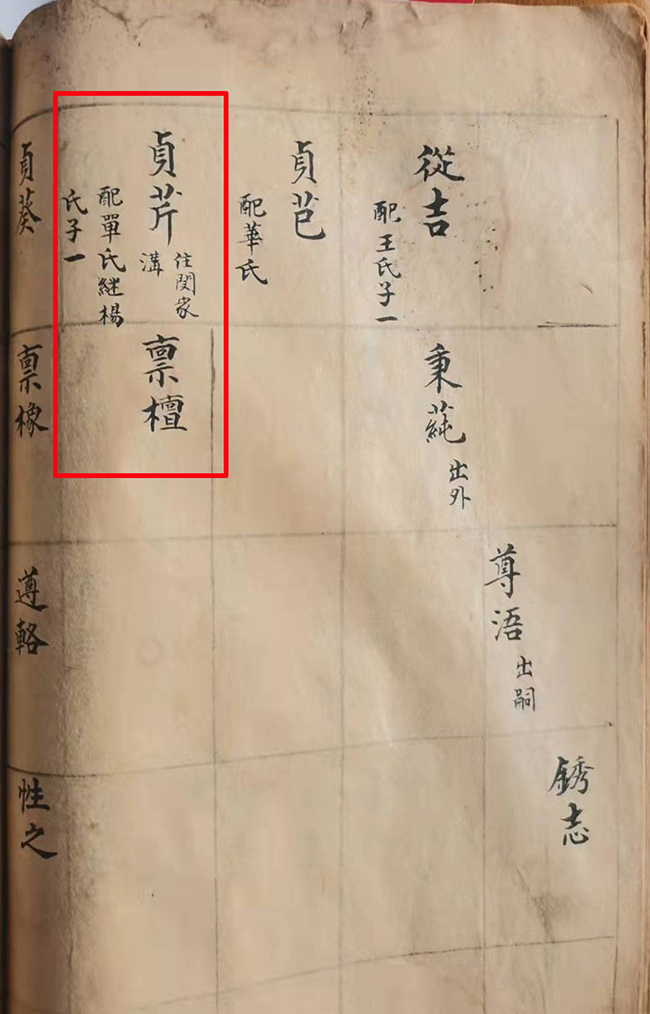 從吉
配王氏子一
貞芑
配華氏
貞芹
住閔家
溝
配單氏継楊
氏子一
貞葵
秉莼
出外
禀檀
禀橡
尊浯
出嗣
遵輅
銹志
性之